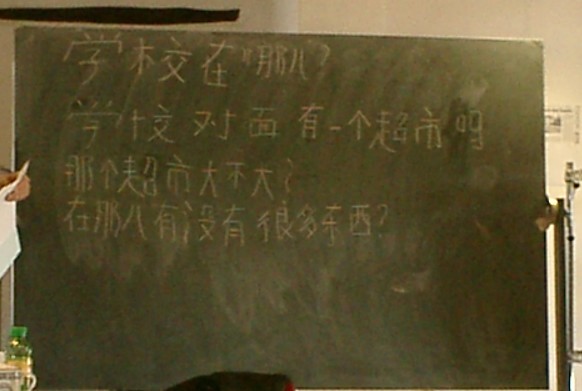 学校在哪儿?
学校对面有一个超市吗
那个超市大不大?
在那儿有没有很多东西?